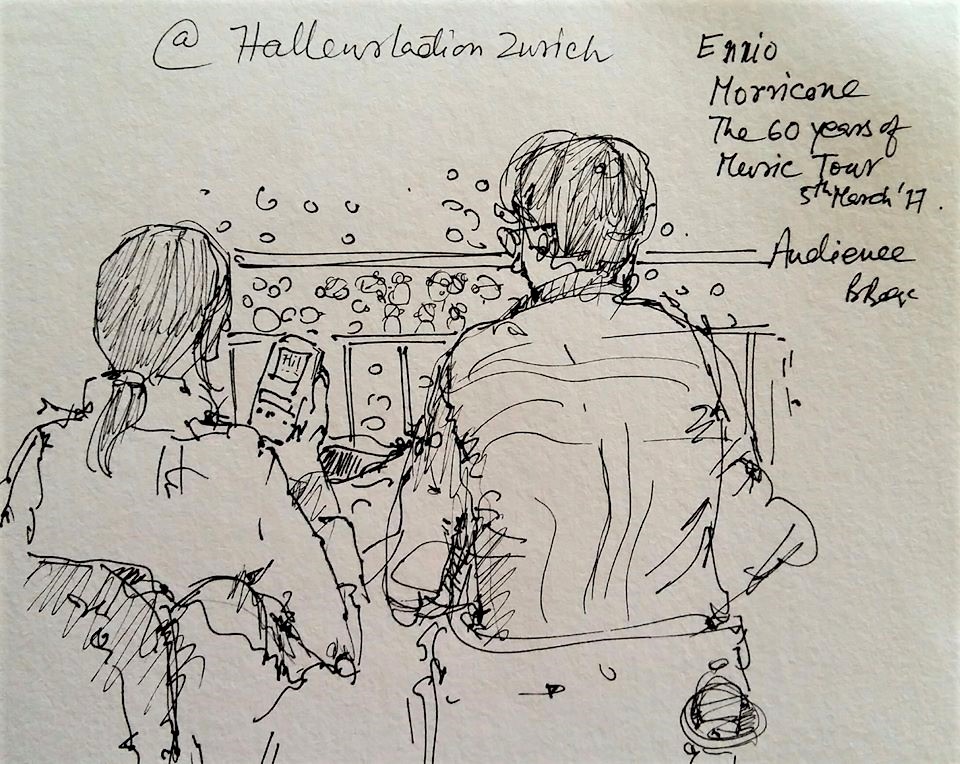 @ Hallenstadion Zurich
Ennio
Morricone
The 60 years of
Music Tour
5th March '17.
Audience
Hi!